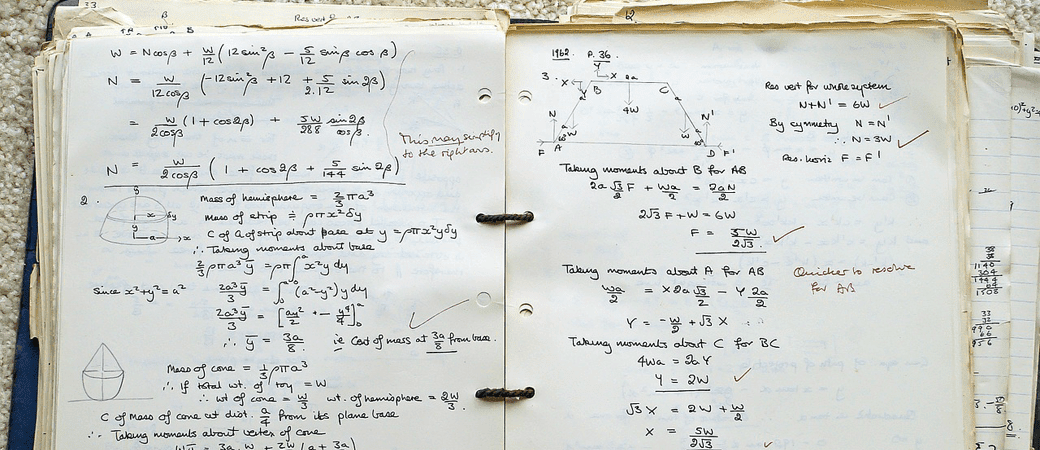 33
W = Ncosβ + W/12 (12 sin²β − 5/12 sinβ cosβ)
N = W/12cosβ (−12sin²β + 12 + 5/2.12 sin 2β)
= W/2cosβ (1 + cos2β) + 5W/288 sin2β/cosβ.
This may simplify
to the right ans.
N = W/2cosβ (1 + cos2β + 5/144 sin 2β)
2.
Mass of hemisphere = 2/3 πρa³
mass of strip ≑ ρπx²δy
C of G of strip about base at y = ρπx²yδy
∴ Taking moments about base
2/3 ρπa³ȳ = ρπ∫₀ᵃ x²y dy
Since x²+y² = a² 2a³ȳ/3 = ∫₀ᵃ (a²−y²) y dy
2a³ȳ/3 = [ay²/2 − y⁴/4]₀ᵃ
∴ ȳ = 3a/8 ie Cent of mass at 3a/8 from base.
Mass of cone = 1/3 ρπa³
∴ If total wt. of toy = W
∴ wt of cone = W/3 wt. of hemisphere = 2W/3.
C of Mass of cone at dist. a/4 from its plane base
∴ Taking moments about vertex of cone
12.
1962. P. 36
3.
Y
X 2a
X B C
Y 4W
N N'
W W
F A D F'
Res vert for whole system
N+N' = 6W
By symmetry N = N'
∴ N = 3W
Res. horiz F = F'
Taking moments about B for AB
2a√3/2 F + Wa/2 = 2aN/2
2√3 F + W = 6W
F = 5W/2√3
Taking moments about A for AB
Quicker to resolve
for AB
Wa/2 = X2a√3/2 − Y2a/2
Y = −W/2 + √3 X
Taking moments about C for BC
4Wa = 2aY
Y = 2W
√3 X = 2W + W/2
X = 5W/2√3